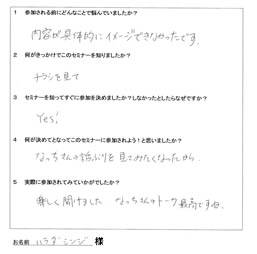 1 参加される前にどんなことで悩んでいましたか?
内容が具体的にイメージできなかったです。
2 何がきっかけでこのセミナーを知りましたか?
チラシを見て
3 セミナーを知ってすぐに参加を決めましたか?しなかったとしたらなぜですか?
Yes!
4 何が決めてとなってこのセミナーに参加されよう!と思いましたか?
なっちさんの話ぶりを見てみたくなったから.
5 実際に参加されてみていかがでしたか?
楽しく聞けました なっちさんのトーク最高ですね.
お名前 ハラダ シンジ 様